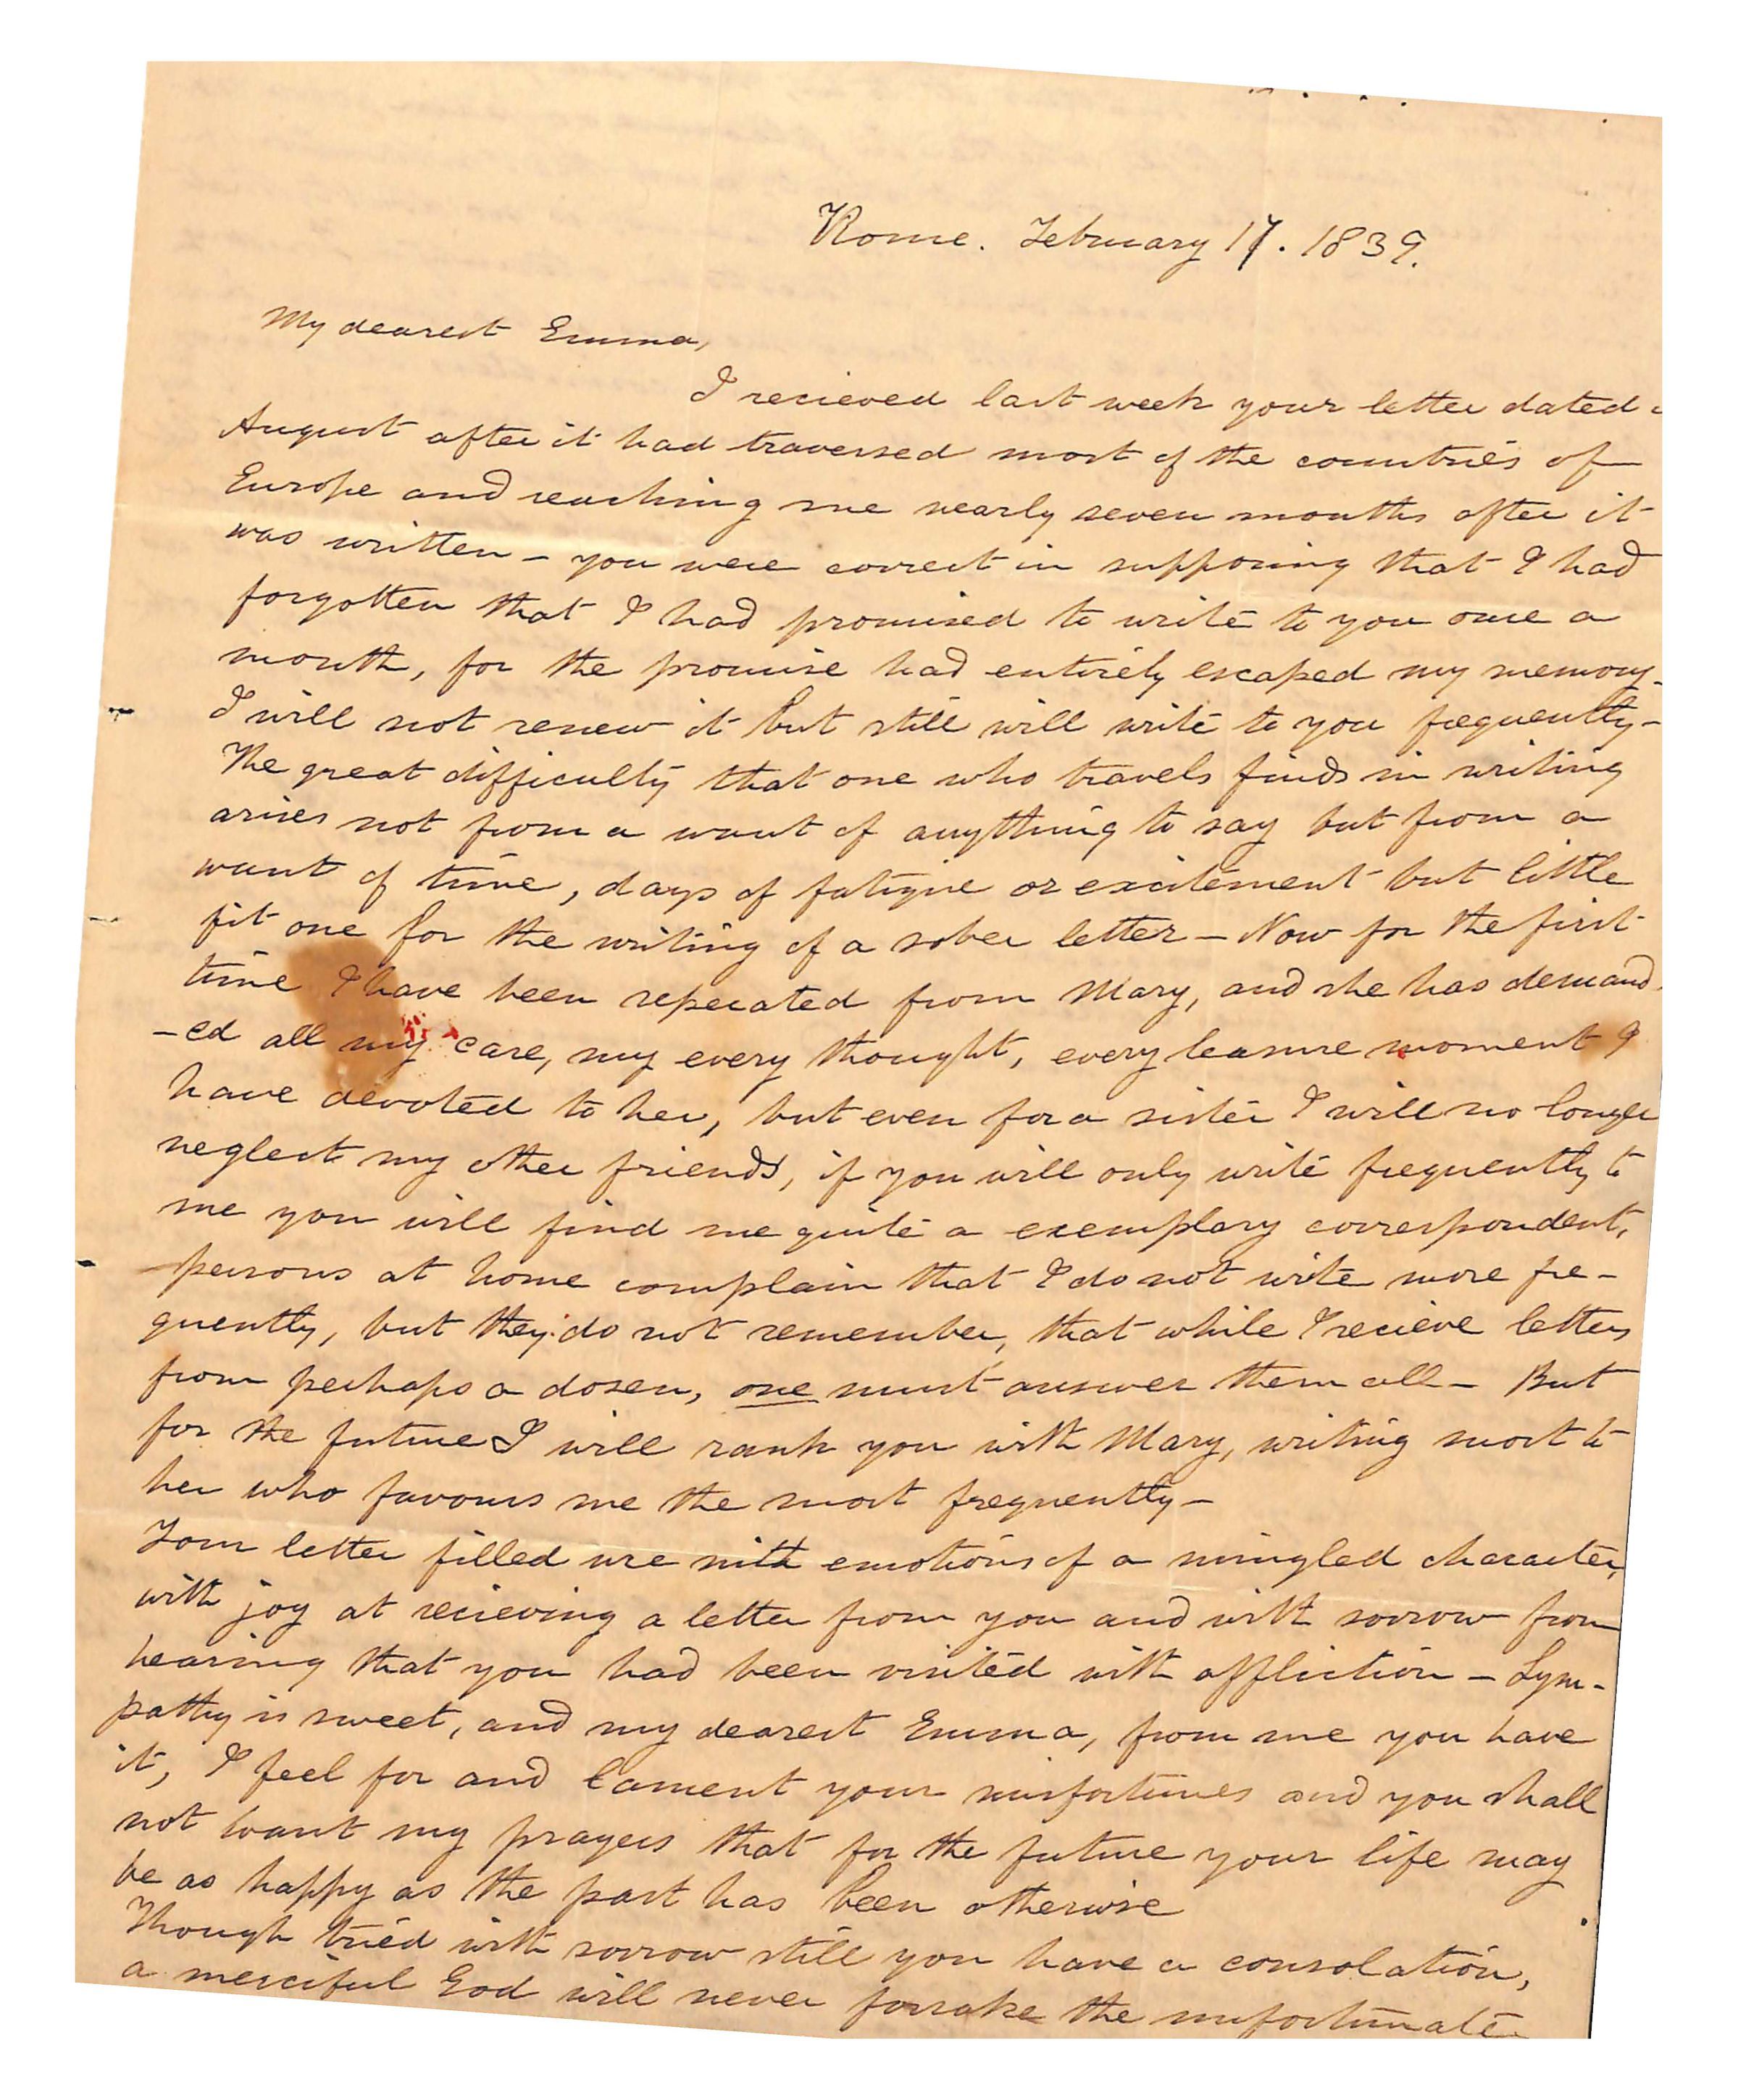 Rome. February 17. 1839.
My dearest Emma,
I recieved last week your letter dated
August after it had traversed most of the countries of
Europe and reaching me nearly seven months after it
was written – you were correct in supposing that I had
forgotten that I had promised to write to you once a
month, for the promise had entirely escaped my memory.
I will not renew it but still will write to you frequently –
The great difficulty that one who travels finds in writing
arises not from a want of anything to say but from a
want of time, days of fatigue or excitement but little
fit one for the writing of a sober letter – Now for the first
time I have been seperated from Mary, and she has demand
-ed all my care, my every thought, every leasure moment I
have devoted to her, but even for a sister I will no longer
neglect my other friends, if you will only write frequently to
me you will find me quite a exemplary correspondent,
persons at home complain that I do not write more fre-
quently, but they do not remember, that while I recieve letters
from perhaps a dosen, one must answer them all – But
for the future I will rank you with Mary, writing most to
her who favours me the most frequently –
Your letter filled me with emotions of a mingled character,
with joy at recieving a letter from you and with sorrow from
hearing that you had been visited with affliction – Sym-
pathy is sweet, and my dearest Emma, from me you have
it, I feel for and lament your misfortunes and you shall
not want my prayers that for the future your life may
be as happy as the past has been otherwise
Though tried with sorrow still you have a consolation,
a merciful God will never forsake the unfortunate